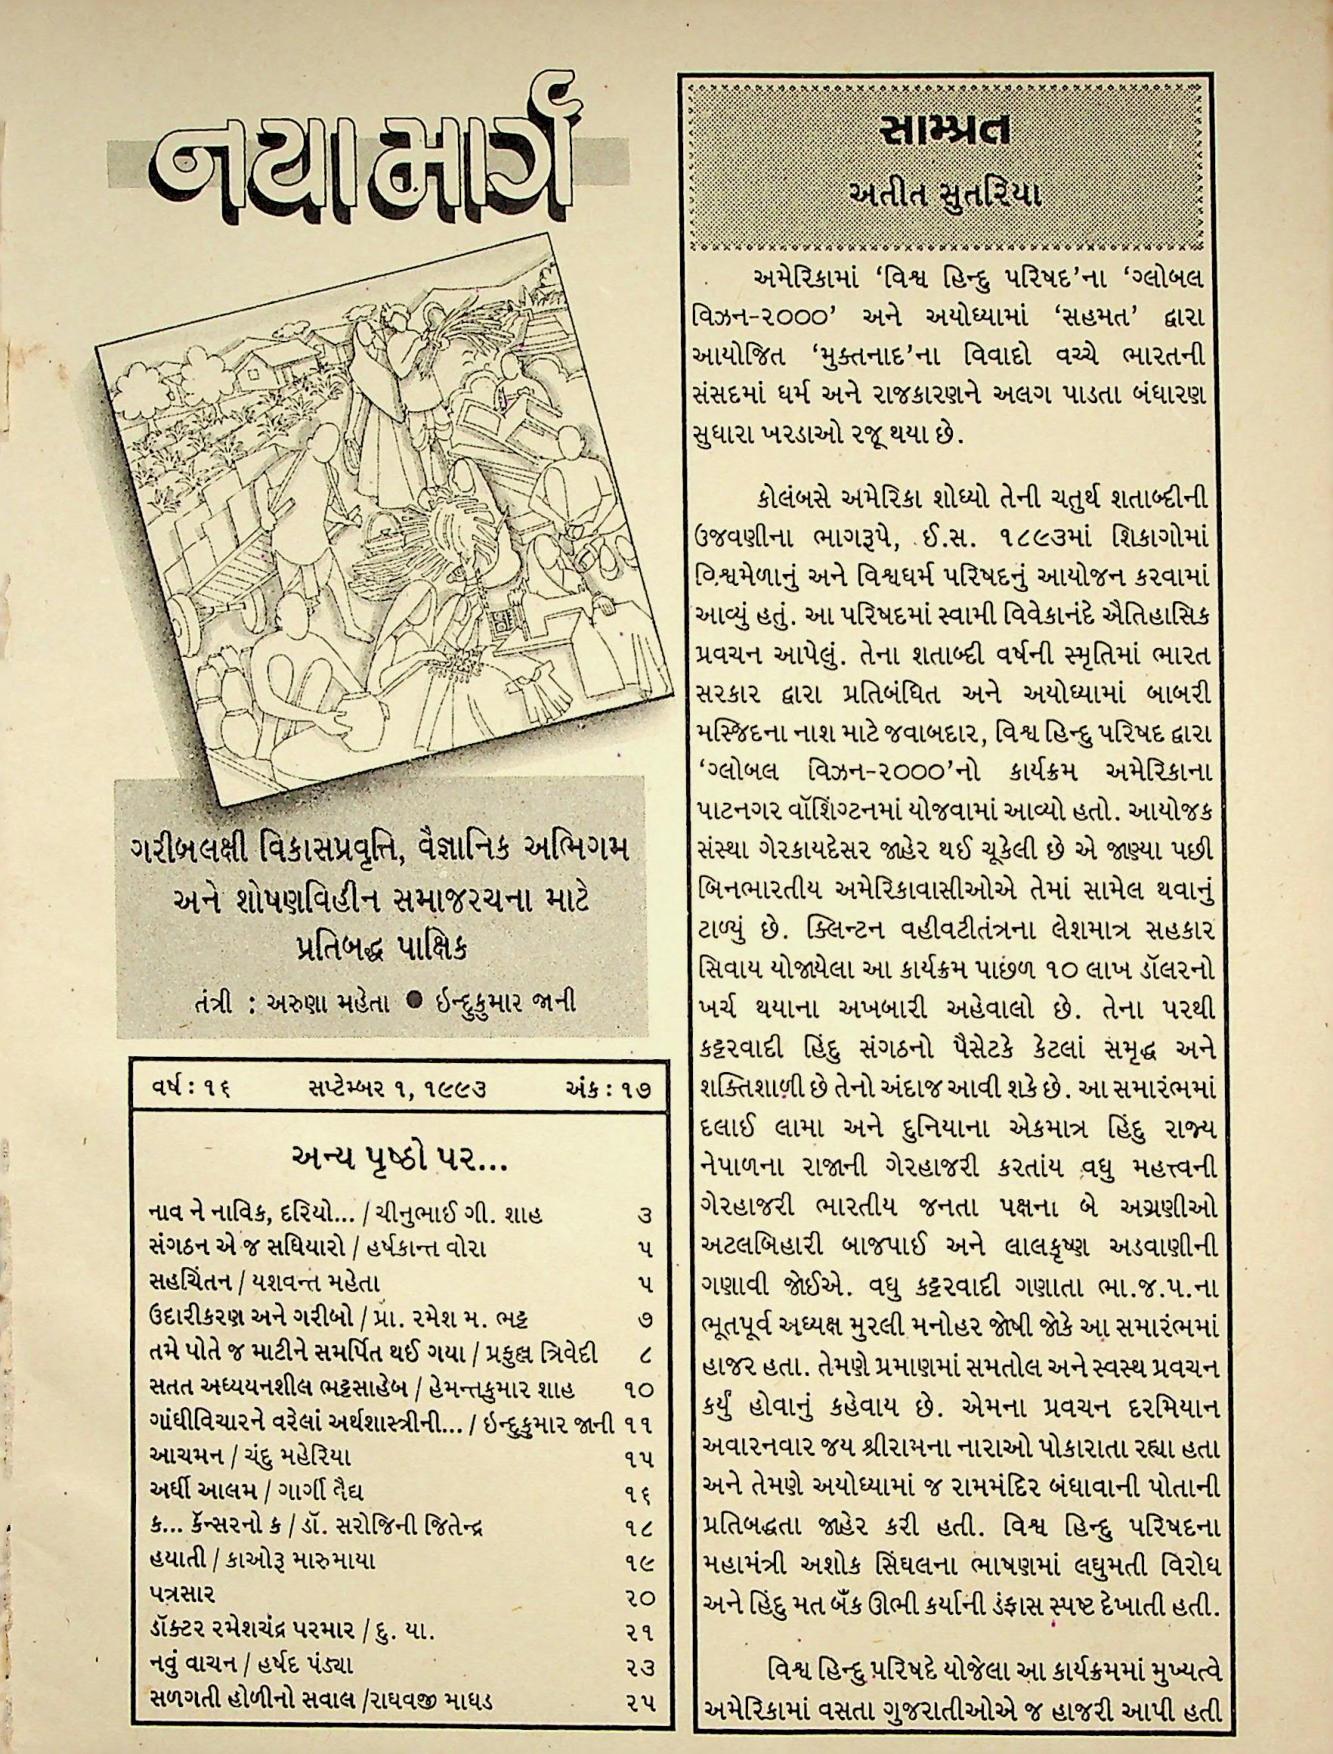 નયા માર્ગ
ગરીબલક્ષી વિકાસપ્રવૃત્તિ, વૈજ્ઞાનિક અભિગમ
અને શોષણવિહીન સમાજરચના માટે
પ્રતિબદ્ધ પાક્ષિક
તંત્રી : અરુણા મહેતા ● ઇન્દુકુમાર જાની
વર્ષ : ૧૬ સપ્ટેમ્બર ૧, ૧૯૯૩ અંક : ૧૭
અન્ય પૃષ્ઠો પર...
નાવ ને નાવિક, દરિયો... / ચીનુભાઈ ગી. શાહ ૩
સંગઠન એ જ સધિયારો / હર્ષકાન્ત વોરા ૫
સહચિંતન / યશવન્ત મહેતા ૫
ઉદારીકરણ અને ગરીબો / પ્રા. રમેશ મ. ભટ્ટ ૭
તમે પોતે જ માટીને સમર્પિત થઈ ગયા / પ્રફુલ્લ ત્રિવેદી ૮
સતત અધ્યયનશીલ ભટ્ટસાહેબ / હેમન્તકુમાર શાહ ૧૦
ગાંધીવિચારને વરેલાં અર્થશાસ્ત્રીની... / ઇન્દુકુમાર જાની ૧૧
આચમન / ચંદુ મહેરિયા ૧૫
અર્ધી આલમ / ગાર્ગી વૈદ્ય ૧૬
ક... કૅન્સરનો ક / ડૉ. સરોજિની જિતેન્દ્ર ૧૮
હયાતી / કાઓરૂ મારુમાયા ૧૯
પત્રસાર ૨૦
ડૉક્ટર રમેશચંદ્ર પરમાર / દુ. યા. ૨૧
નવું વાચન / હર્ષદ પંડ્યા ૨૩
સળગતી હોળીનો સવાલ /રાઘવજી માધડ ૨૫
સામ્પ્રત
અતીત સુતરિયા
અમેરિકામાં ‘વિશ્વ હિન્દુ પરિષદ’ના ‘ગ્લોબલ
વિઝન-૨૦૦૦’ અને અયોધ્યામાં ‘સહમત’ દ્વારા
આયોજિત ‘મુક્તનાદ’ના વિવાદો વચ્ચે ભારતની
સંસદમાં ધર્મ અને રાજકારણને અલગ પાડતા બંધારણ
સુધારા ખરડાઓ રજૂ થયા છે.
કોલંબસે અમેરિકા શોધ્યો તેની ચતુર્થ શતાબ્દીની
ઉજવણીના ભાગરૂપે, ઈ.સ. ૧૮૯૩માં શિકાગોમાં
વિશ્વમેળાનું અને વિશ્વધર્મ પરિષદનું આયોજન કરવામાં
આવ્યું હતું. આ પરિષદમાં સ્વામી વિવેકાનંદે ઐતિહાસિક
પ્રવચન આપેલું. તેના શતાબ્દી વર્ષની સ્મૃતિમાં ભારત
સરકાર દ્વારા પ્રતિબંધિત અને અયોધ્યામાં બાબરી
મસ્જિદના નાશ માટે જવાબદાર, વિશ્વ હિન્દુ પરિષદ દ્વારા
‘ગ્લોબલ વિઝન-૨૦૦૦’નો કાર્યક્રમ અમેરિકાના
પાટનગર વૉશિંગ્ટનમાં યોજવામાં આવ્યો હતો. આયોજક
સંસ્થા ગેરકાયદેસર જાહેર થઈ ચૂકેલી છે એ જાણ્યા પછી
બિનભારતીય અમેરિકાવાસીઓએ તેમાં સામેલ થવાનું
ટાળ્યું છે. ક્લિન્ટન વહીવટીતંત્રના લેશમાત્ર સહકાર
સિવાય યોજાયેલા આ કાર્યક્રમ પાછળ ૧૦ લાખ ડૉલરનો
ખર્ચ થયાના અખબારી અહેવાલો છે. તેના પરથી
કટ્ટરવાદી હિંદુ સંગઠનો પૈસેટકે કેટલાં સમૃદ્ધ અને
શક્તિશાળી છે તેનો અંદાજ આવી શકે છે. આ સમારંભમાં
દલાઈ લામા અને દુનિયાના એકમાત્ર હિંદુ રાજ્ય
નેપાળના રાજાની ગેરહાજરી કરતાંય વધુ મહત્ત્વની
ગેરહાજરી ભારતીય જનતા પક્ષના બે અગ્રણીઓ
અટલબિહારી બાજપાઈ અને લાલકૃષ્ણ અડવાણીની
ગણાવી જોઈએ. વધુ કટ્ટરવાદી ગણાતા ભા.જ.પ.ના
ભૂતપૂર્વ અધ્યક્ષ મુરલી મનોહર જોષી જોકે આ સમારંભમાં
હાજર હતા. તેમણે પ્રમાણમાં સમતોલ અને સ્વસ્થ પ્રવચન
કર્યું હોવાનું કહેવાય છે. એમના પ્રવચન દરમિયાન
અવારનવાર જય શ્રીરામના નારાઓ પોકારાતા રહ્યા હતા
અને તેમણે અયોધ્યામાં જ રામમંદિર બંધાવાની પોતાની
પ્રતિબદ્ધતા જાહેર કરી હતી. વિશ્વ હિન્દુ પરિષદના
મહામંત્રી અશોક સિંઘલના ભાષણમાં લઘુમતી વિરોધ
અને હિંદુ મત બૅંક ઊભી કર્યાની ડંફાસ સ્પષ્ટ દેખાતી હતી.
વિશ્વ હિન્દુ પરિષદે યોજેલા આ કાર્યક્રમમાં મુખ્યત્વે
અમેરિકામાં વસતા ગુજરાતીઓએ જ હાજરી આપી હતી